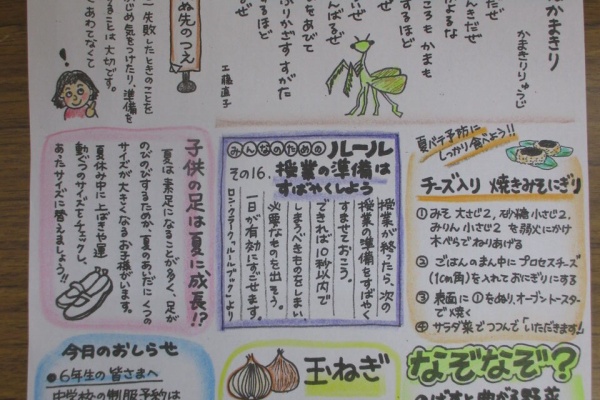 かまきり
かまきりりゅうじ
工藤直子
ぬ先のつえ
失敗したときのことを
はじめ気をつけたり、準備を
ることは、大切です。
あわてなくて
夏バテ予防に
しっかり食べよう!!
チーズ入り 焼きみそにぎり
① みそ 大さじ2、砂糖 小さじ2、
みりん 小さじ2 を 弱火にかけ
木べらでねりあげる
② ごはんのまん中にプロセスチーズ
(1cm角)を入れておにぎりにする
③ 表面に①をぬり、オーブントースター
で焼く
④ サラダ菜でつつんで「いただきます」
みんなのための ルール
その16. 授業の準備は
すばやくしよう
授業が終ったら、次の
授業の準備をすばやく
すませておこう。
できれば10秒以内で
しまうべきものをしまい、
必要なものを出そう。
一日が有効にすごせます。
ロン・クラーク「ルールブック」より
子供の足は夏に成長!?
夏は素足になることが多く、足が
のびのびするためか、夏のあいだにくつの
サイズが大きくなるお子様がいます。
夏休み中に上ばきや運
動ぐつのサイズをチェックし、
あったサイズに替えましょう!!
今日のおしらせ
●6年生の皆さまへ
中学校の制服予約は
玉ねぎ
なぞなぞ?
のばすと曲がる野菜